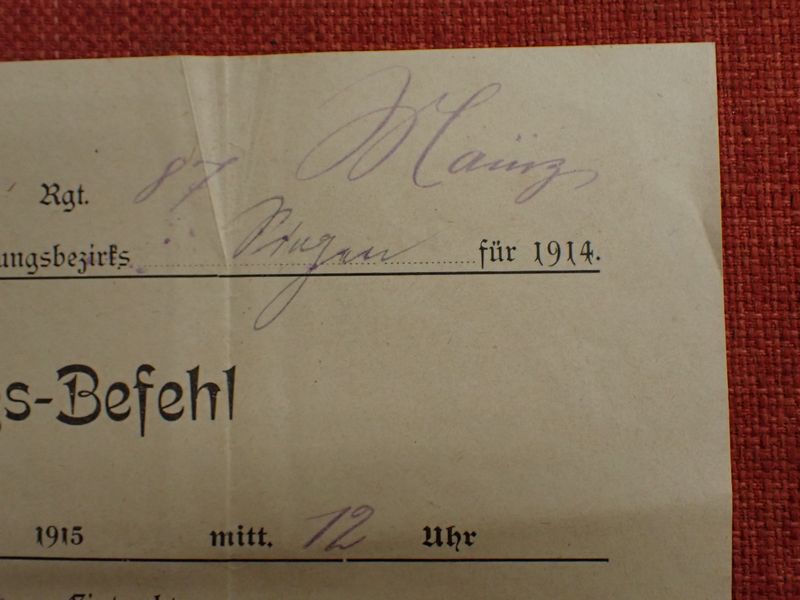 Rgt. 87 Mainz
ungsbezirks Singen für 1914.
gs-Befehl
1915 mitt. 12 Uhr